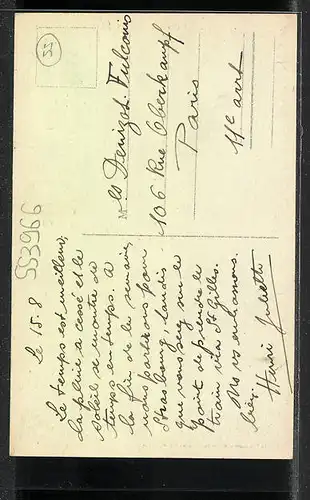 55
Ms Denizot Fulconis
106 Rue Oberkampf
Paris
11e arrt
553966
Le 15.8
Le temps est meilleur,
la pluie a cessé et le
soleil se montre de
temps en temps. A
la fin de la semaine,
nous partirons pour
Strasbourg, tandis
que vous serez sur le
point de prendre le
train via St Gilles.
Ns vs embrassons.
bien
Henri Juliette